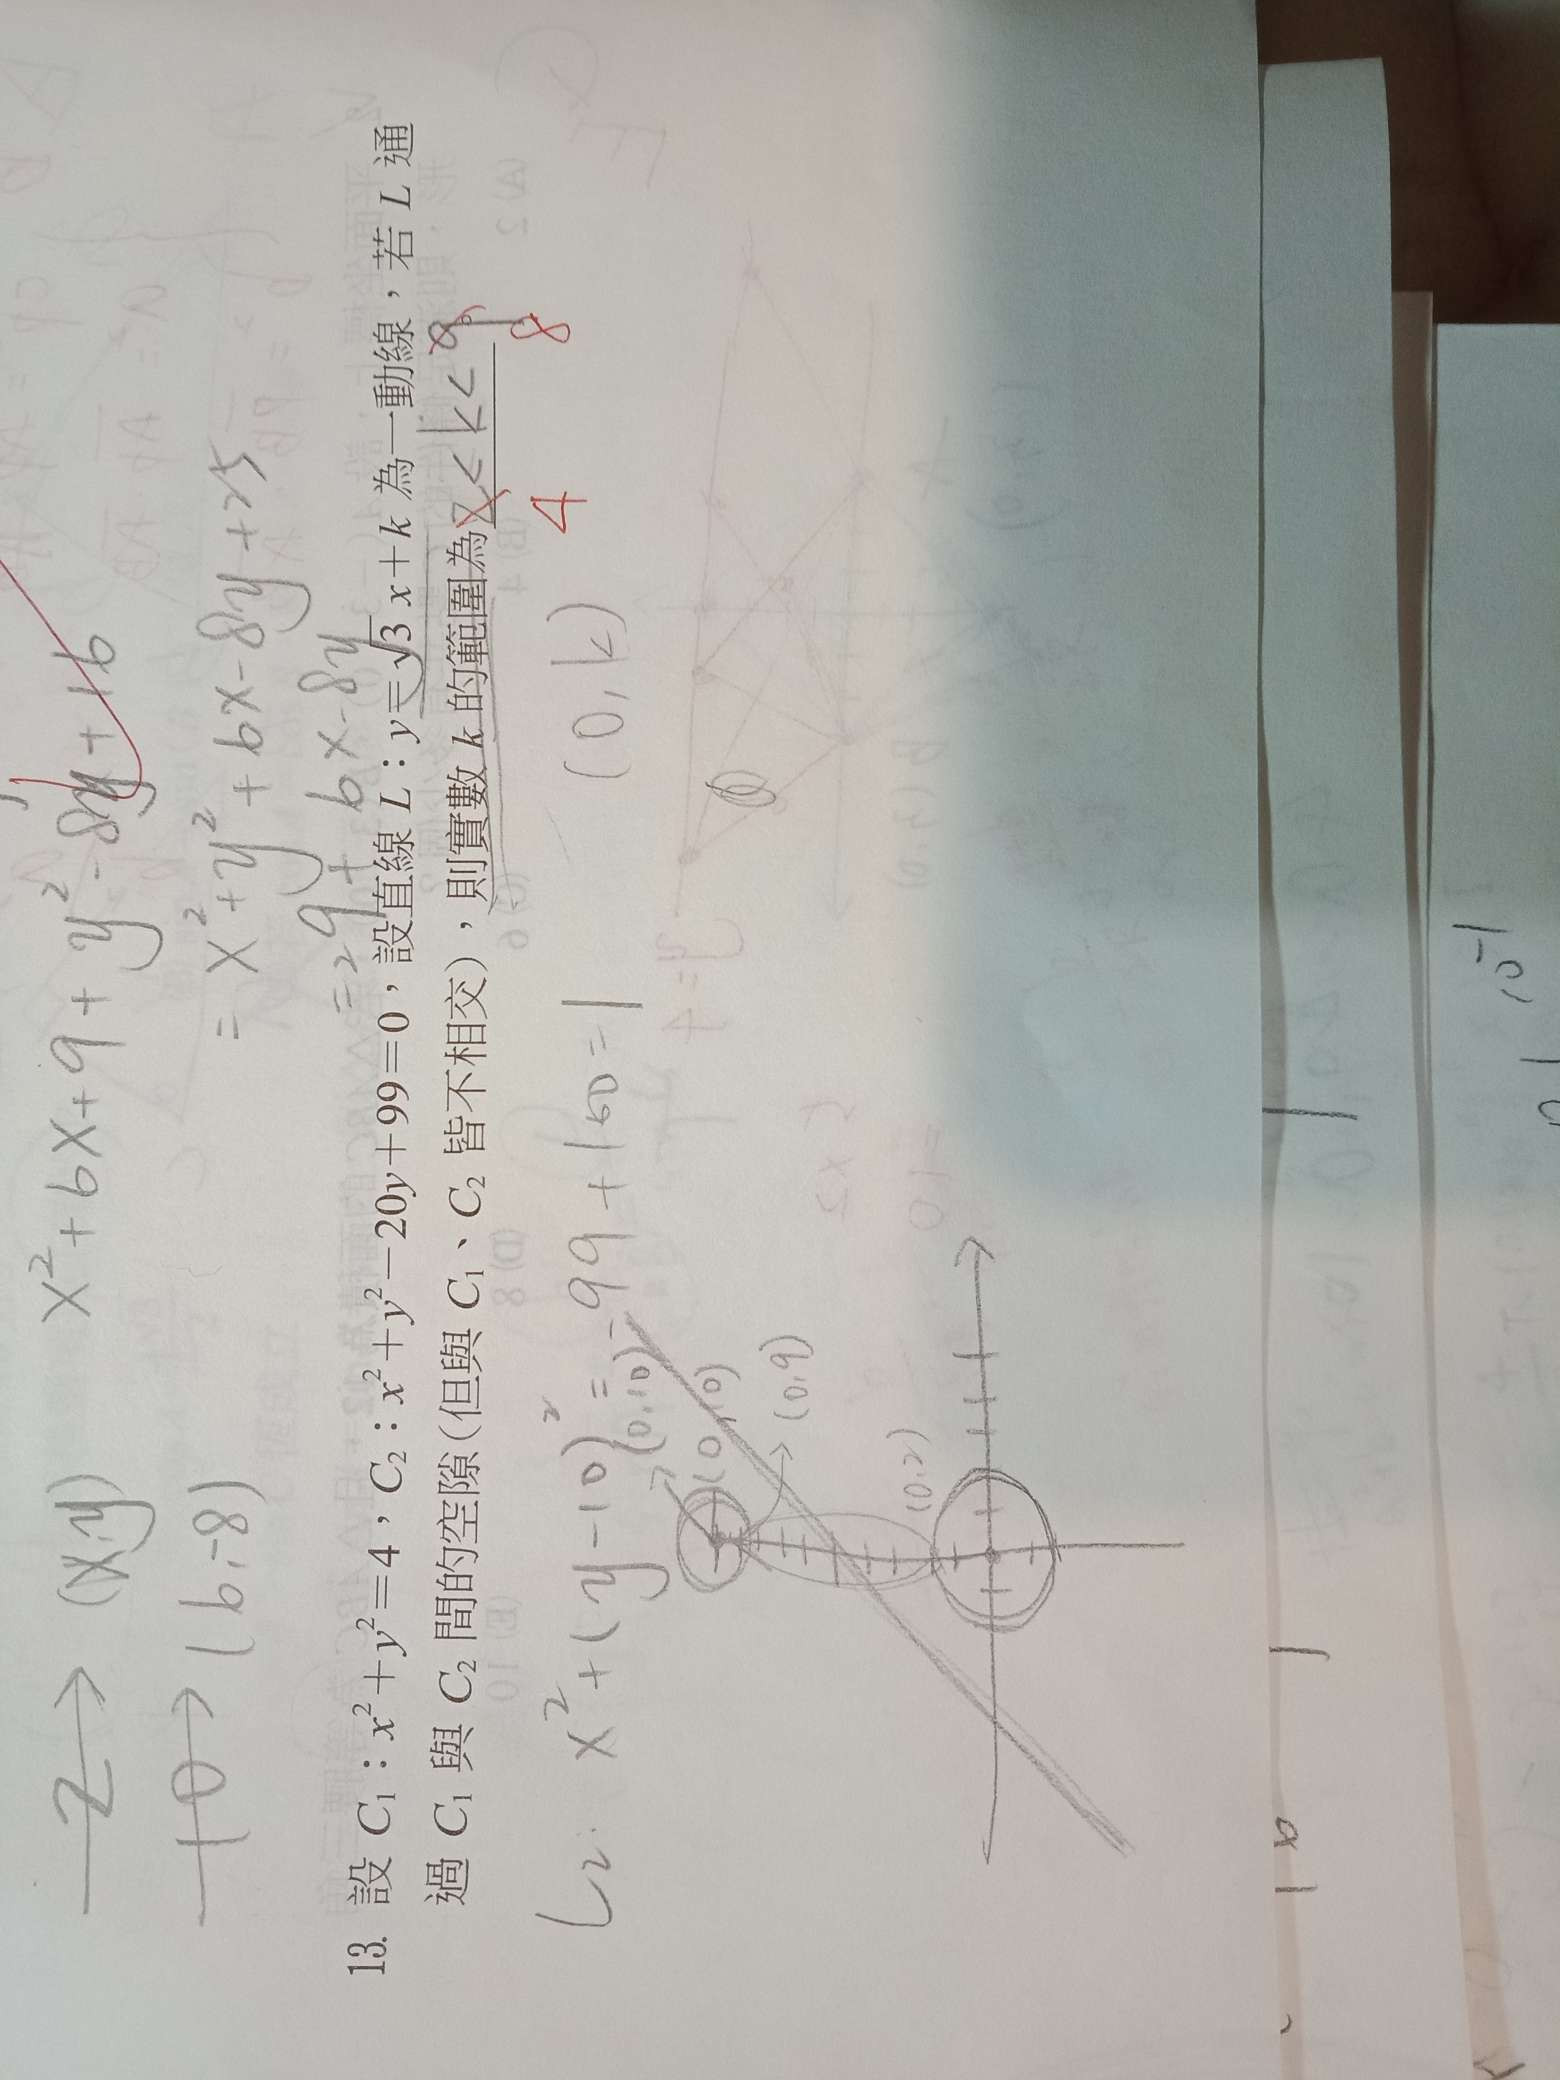 Z→ (x,y) x²+6x+9+y²-8y+16
10→ (6,-8) = x²+y²+6x-8y+25
=29+6x-8y
13. 設 C₁：x²+y²=4，C₂：x²+y²−20y+99=0，設直線 L：y=√3 x+k 為一動線，若 L 通
過 C₁ 與 C₂ 間的空隙(但與 C₁、C₂ 皆不相交)，則實數 k 的範圍為 2<k<9
4 8
x²+(y-10)²=-99+100=1 (0,k)
(0,10)
(0,10)
(0,9)
(0,2)
10⁻¹